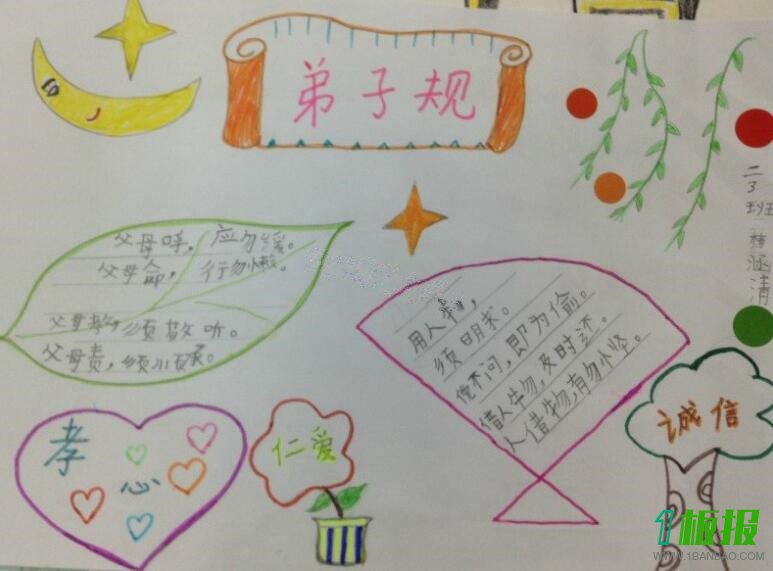 弟子规
父母呼，应勿缓。
父母命，行勿懒。
父母教，须敬听。
父母责，须顺承。
用人物，
须明求。
倘不问，即为偷。
借人物，及时还。
人借物，有勿小怪。
二3班
涵清
孝心
仁爱
诚信
1板报
WWW.1BANBAO.COM